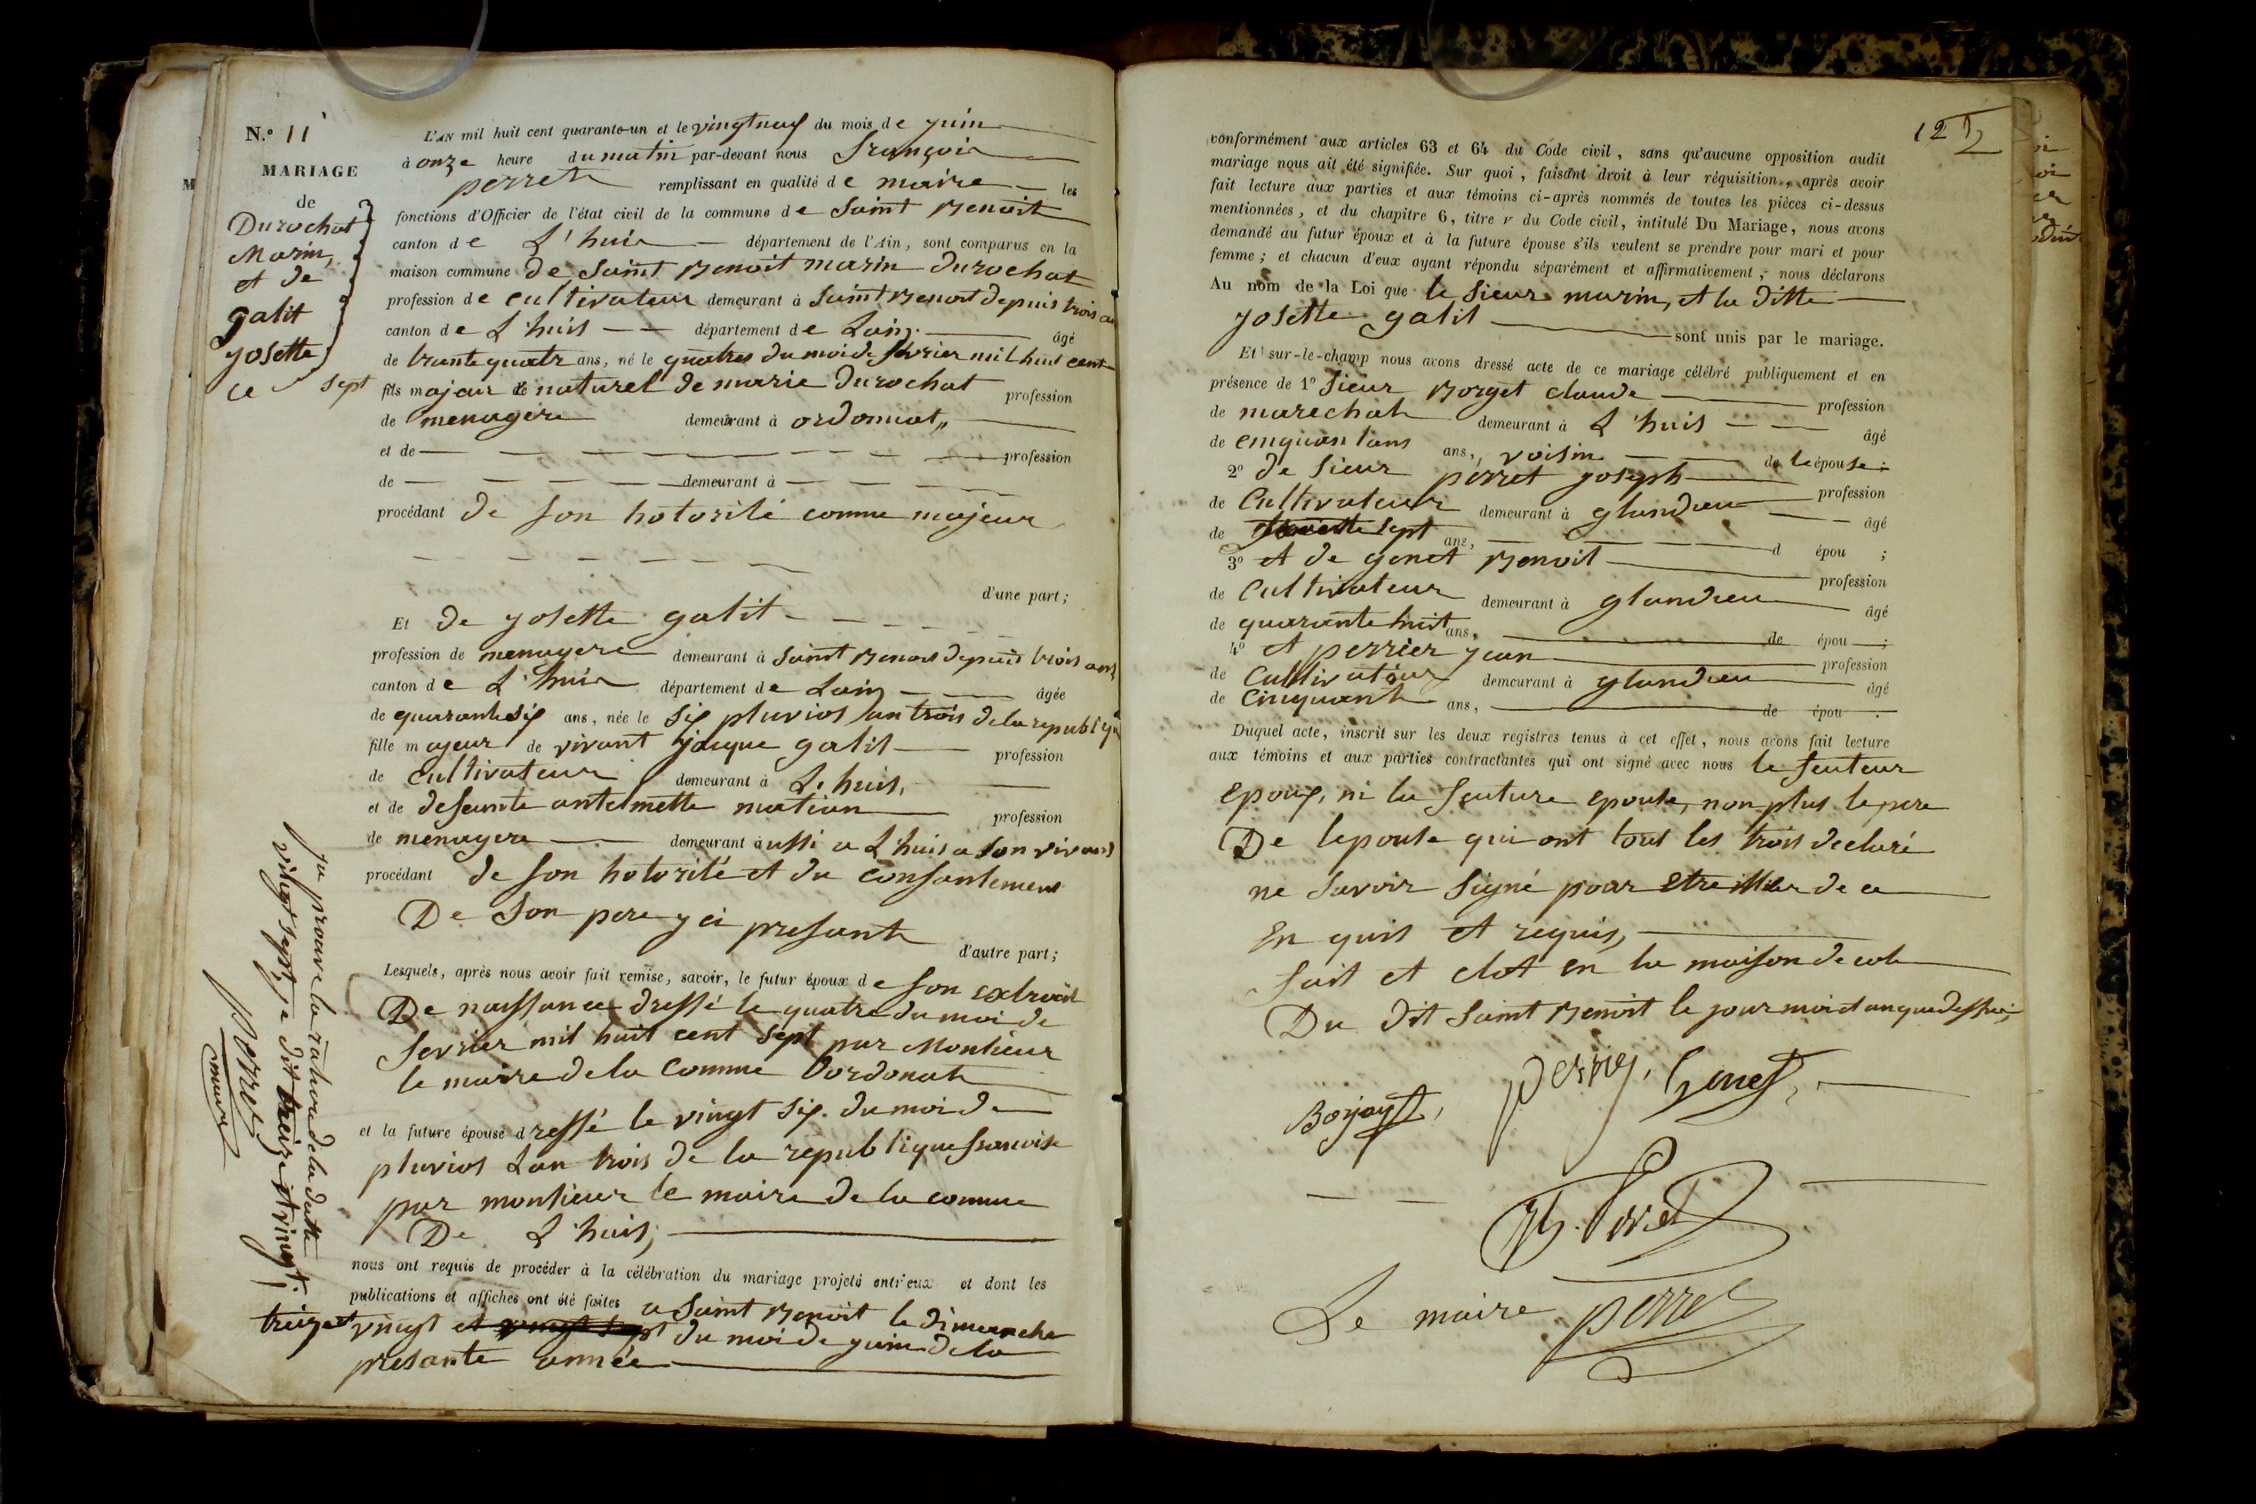 N.o 11
MARIAGE
de
Durochat
Marin,
et de
galit
josette
ce
L'AN mil huit cent quarante-un et le vingtneuf du mois de juin
à onze heure du matin par-devant nous françois
perret remplissant en qualité de maire les
fonctions d'Officier de l'état civil de la commune de Saint Benoit
canton de L'huis département de l'Ain, sont comparus en la
maison commune de Saint Benoit marin durochat
profession de cultivateur demeurant à Saint Benoit depuis trois an
canton de L'huis département de Lain âgé
de trante quatr ans, né le quatres du moi de fevrier mil huit cent
sept fils majeur de naturel de marie durochat profession
de menagère demeurant à ordonnat,,
et de profession
de demeurant à
procédant de son hotorité comme majeur
d'une part;
Et de josette galit
profession de menagere demeurant à Saint Benoit depuis trois ans
canton de L'huis département de Lain âgée
de quarante six ans, née le six pluvios lan trois de la republiqu
fille majeur de vivant jacque galit profession
de cultivateur demeurant à L'huis,
et de defunte antelmette matian profession
de menagere demeurant à ussi a L'huis a son vivant
procédant de son hotorité et du consantement
De son pere y ci presant
d'autre part;
Lesquels, après nous avoir fait remise, savoir, le futur époux de son extrait
De naissance dressé le quatre du moi de
fevrier mil huit cent sept par Monsieur
le maire de la Comme Dordonat
et la future épouse dressé le vingt six du moi de
pluvios Lan trois de la republique francoise
par monsieur le maire de la commune
De L'huis,
nous ont requis de procéder à la célébration du mariage projeté entr'eux et dont les
publications et affiches ont été faites a Saint Benoit le dimanche
treize et vingt et vingt sept du moi de juin de la
presante année
ja prouve la rature de la datte
vingt sept, je dit treize et vingt.
Perret
maire
12
conformément aux articles 63 et 64 du Code civil, sans qu'aucune opposition audit
mariage nous ait été signifiée. Sur quoi, faisant droit à leur réquisition, après avoir
fait lecture aux parties et aux témoins ci-après nommés de toutes les pièces ci-dessus
mentionnées, et du chapitre 6, titre v du Code civil, intitulé Du Mariage, nous avons
demandé au futur époux et à la future épouse s'ils veulent se prendre pour mari et pour
femme; et chacun d'eux ayant répondu séparément et affirmativement, nous déclarons
Au nom de la Loi que le sieur marin, et la ditte
josette galit
sont unis par le mariage.
Et sur-le-champ nous avons dressé acte de ce mariage célébré publiquement et en
présence de 1o Sieur Borget claude profession
de marechal demeurant à L'huis âgé
de cinquant ans ans, voisin de le épouse;
2o de sieur perret joseph profession
de Cultivateur demeurant à glandieu âgé
de sept ans, d épou ;
3o et de genet Benoit profession
de Cultivateur demeurant à glandieu âgé
de quarante huit ans, de épou ;
4o et perrier jean profession
de Cultivateur demeurant à glandieu âgé
de Cinquant ans, de épou .
Duquel acte, inscrit sur les deux registres tenus à cet effet, nous avons fait lecture
aux témoins et aux parties contractantes qui ont signé avec nous le feuteur
epoux, ni la feuture epouse, non plus le pere
De lepouse qui ont tous les trois declaré
ne savoir signé pour etre iller de ce
En quis et requis,
fait et clot en la maison decole
Du dit Saint Benoit le jour moi et an que dessus,
Borjayt, perrier, Genet,
Jh. Perret
Le maire perret